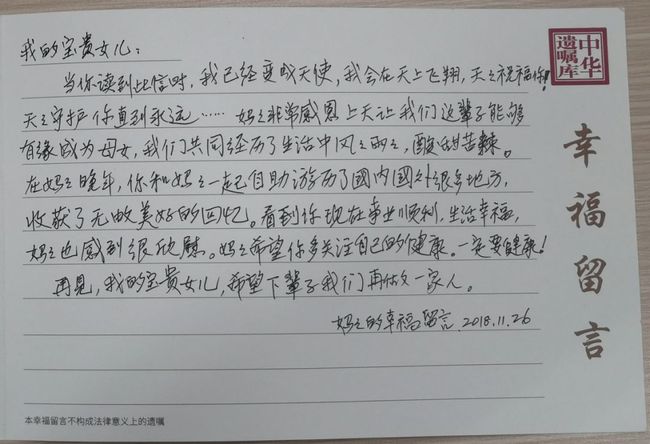 我的宝贵女儿:
当你读到此信时,我已经变成天使,我会在天上飞翔,天天祝福你!
天天守护你直到永远……妈妈非常感恩上天让我们这辈子能够
有缘成为母女,我们共同经历了生活中风风雨雨,酸甜苦辣。
在妈妈晚年,你和妈妈一起自助游历了國内國外很多地方,
收获了无数美好的回忆。看到你现在事业顺利,生活幸福,
妈妈也感到很欣慰。妈妈希望你多关注自己的健康。一定要健康!
再见,我的宝贵女儿,希望下辈子我们再做一家人。
妈妈的幸福留言 2018.11.26
本幸福留言不构成法律意义上的遗嘱
中华
遗嘱库
幸福留言